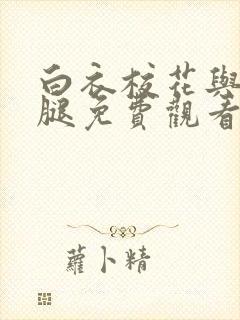 白衣校花與
腿免費觀看
蘿卜精